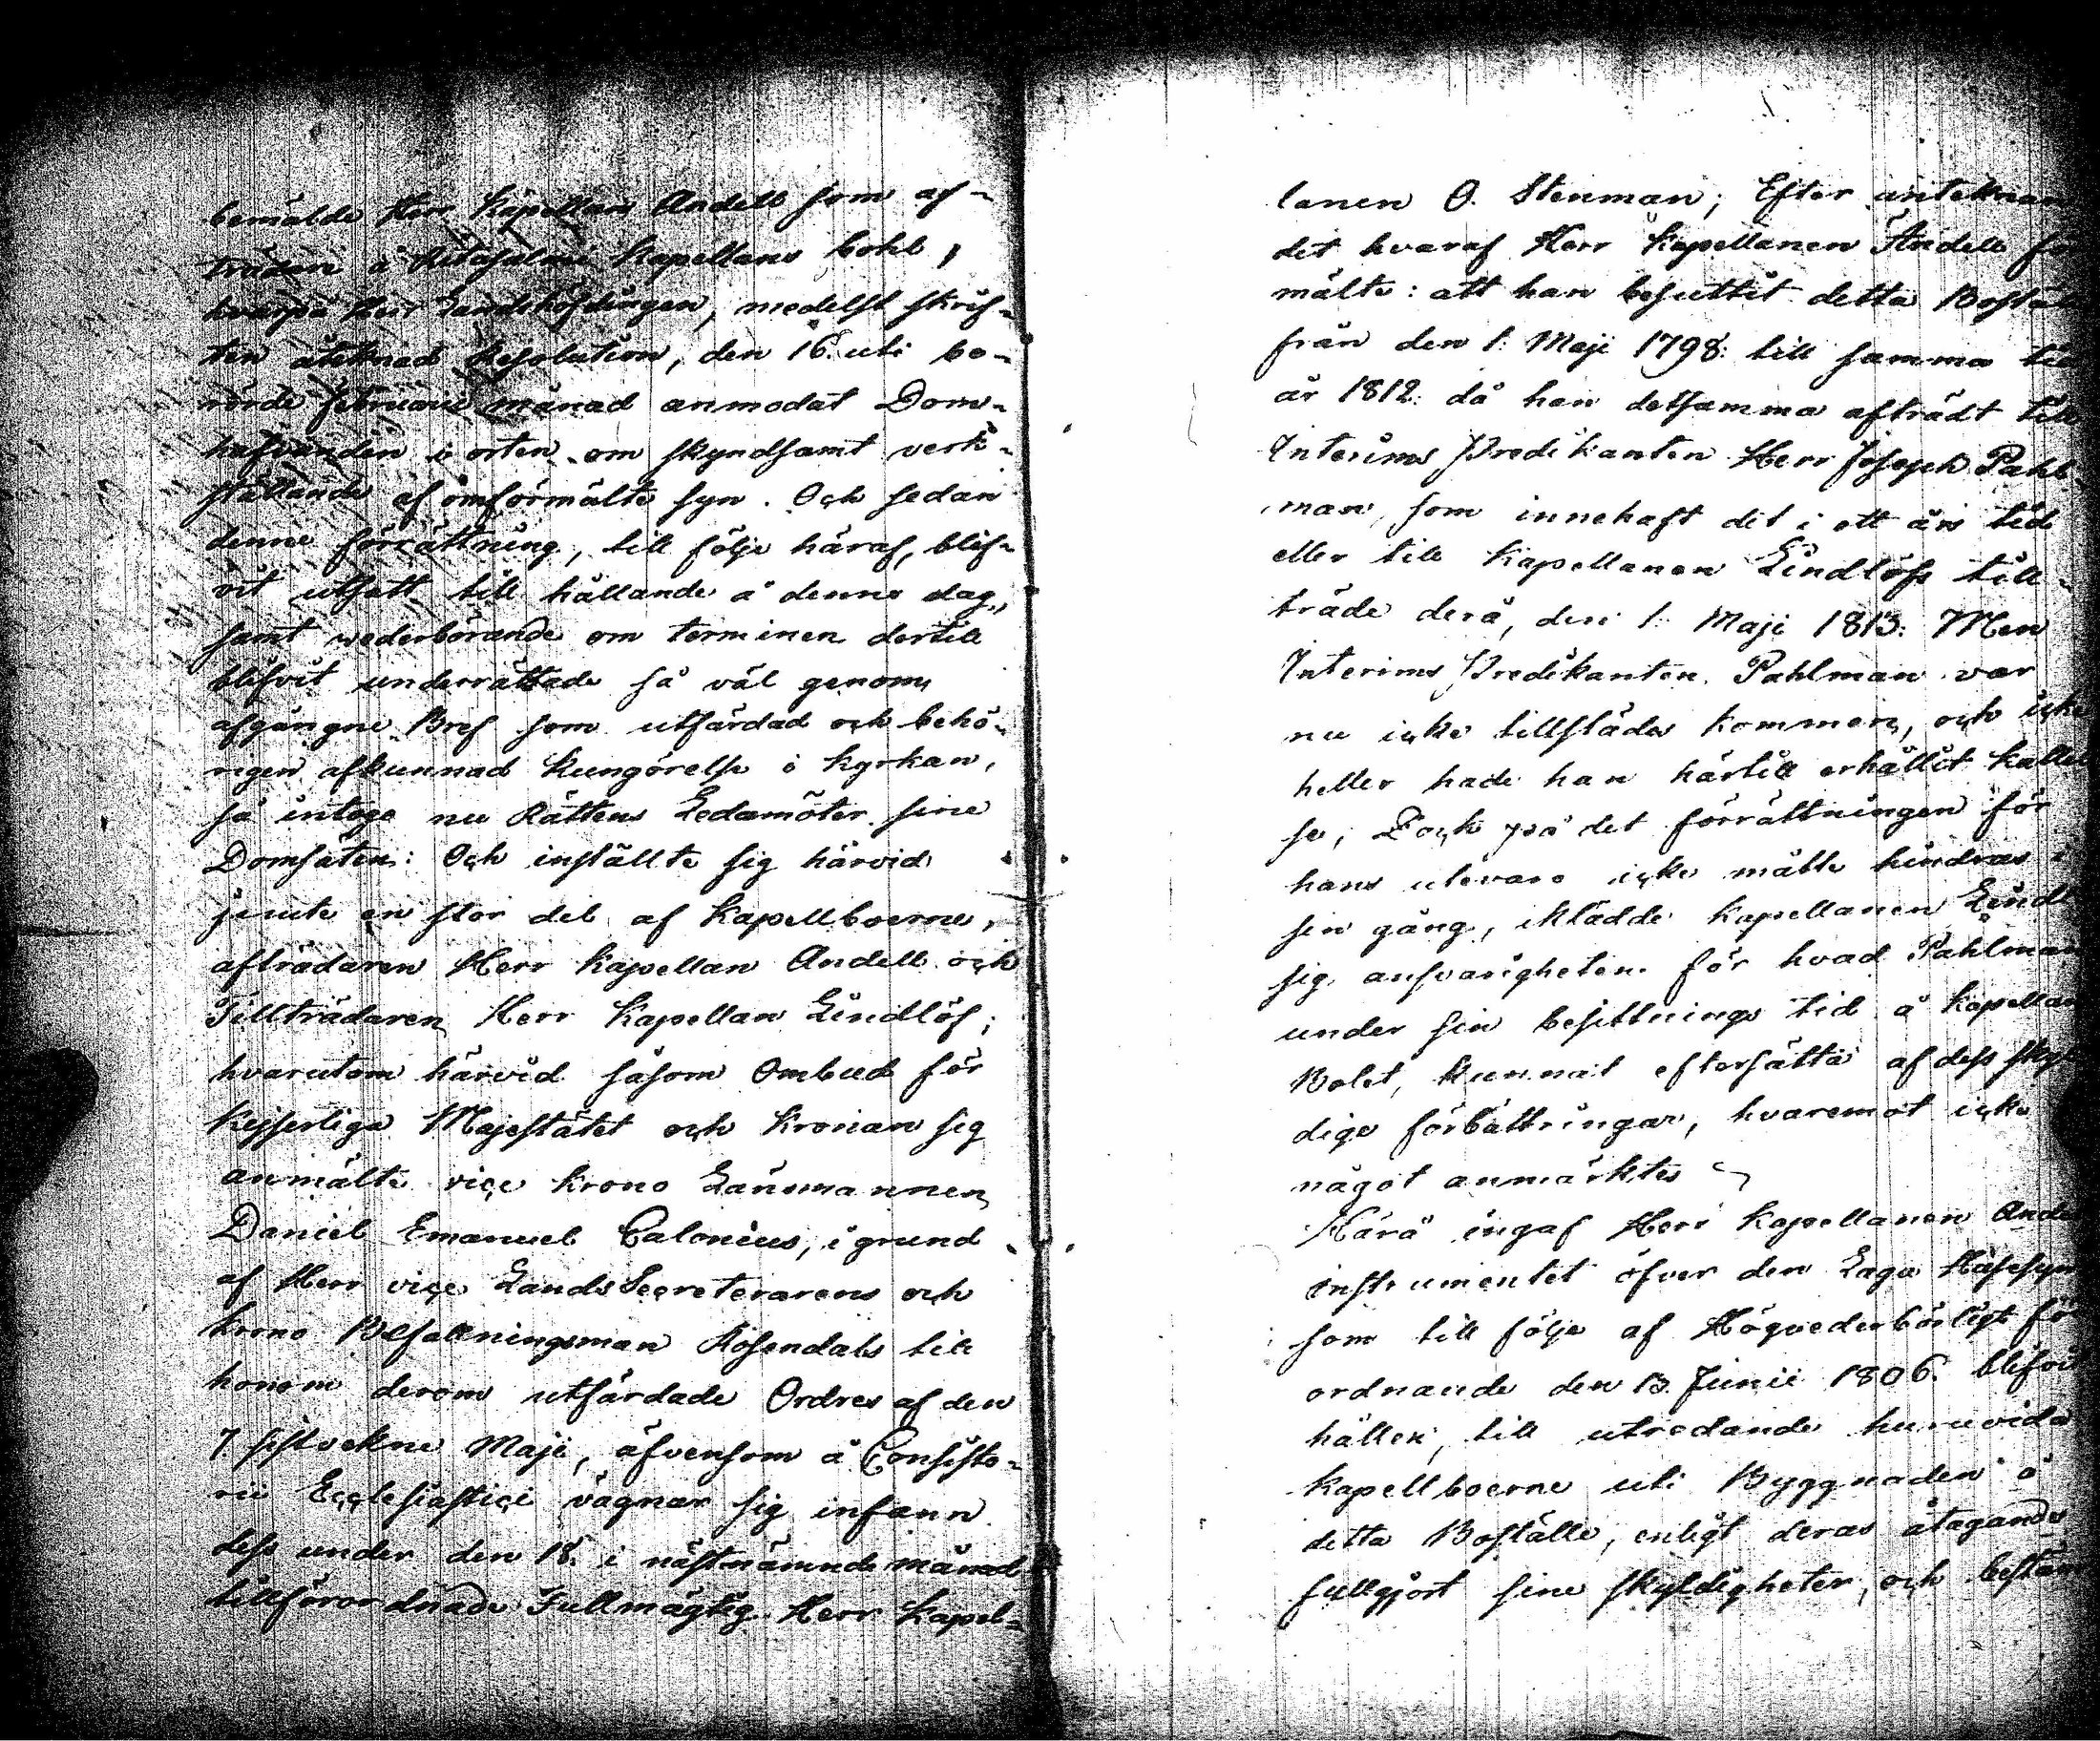 bemälde Herr Kapellan Andell som af-
trädare å Kapellans bohl,
hvarpå Herr Landshöfdingen, medelst skrif-
ten åteknad Resolution, den 16. uti be-
rörde Februarii månad anmodat Dom-
hafvanden i orten om skyndsamt verk-
ställande af omförmälte syn. Och sedan
denne förrättning, till följe häraf, blif-
vit utsatt till hållande å denne dag,
samt wederbörande om terminen dertill
blifvit underrättade så väl genom
afgångne Bref som utfärdad och behö-
rigen afkunnad kungörelse i kyrkan,
så intoge nu Rättens Ledamöter sine
Domsäten: Och inställte sig härvid
jemte en stor del af Kapellboerne,
afträdaren Herr Kapellan Andell och
Tillträdaren Herr Kapellan Lindlöf;
hvarutom härvid såsom Ombud för
Kejserliga Majestätet och Kronan sig
anmälte viçe Krono Länsmannen
Daniel Emanuel Calonius, i grund
af Herr viçe LandsSecreterarens och
Krono Befallningsman Rosendals till
honom derom utfärdade Ordres af den
7 sistvekne Maji, äfvensom å Consisto-
rii Ecclesiastici vägnar sig infann
dess under den 18. i nästnämnde månad
tillförordnade Fullmägtig Herr Kapel-
lanen O. Stenman; Efter anteknan
det hvaraf Herr Kapellanen Andell för
mälte: att han besuttit detta Boställe
från den 1. Maji 1798. till samma tid
år 1812. då han detsamma afträdt till
Interims Predikanten Herr Joseph Pahl-
man, som innehaft det i ett års tid
eller till Kapellanen Lindlöfs till-
träde derå, den 1. Maji 1813. Men
Interims Predikanten Pahlman var
nu icke tillstädes kommen, och icke
heller hade han härtill erhållit kallel
se; Dock på det förrättningen för
hans utevaro icke måtte hindras i
sin gång, iklädde Kapellanen Lindl
sig ansvarigheten för hvad Pahlman
under sin besittnings tid å Kapellans
Bolet, kunnat eftersätta af dess skyl
dige förbättringar, hvaremot icke
något anmärktes
Härå ingaf Herr Kapellanen Ande
instrumentet öfver den Laga Husesyn
som till följe af Högvederbörligt för
ordnande den 13. Junii 1806. blifvit
hållen, till utredande huruvida
Kapellboerne uti Byggnaden å
detta Boställe, enligt deras åtagande
fullgjort sine skyldigheter, och bestän